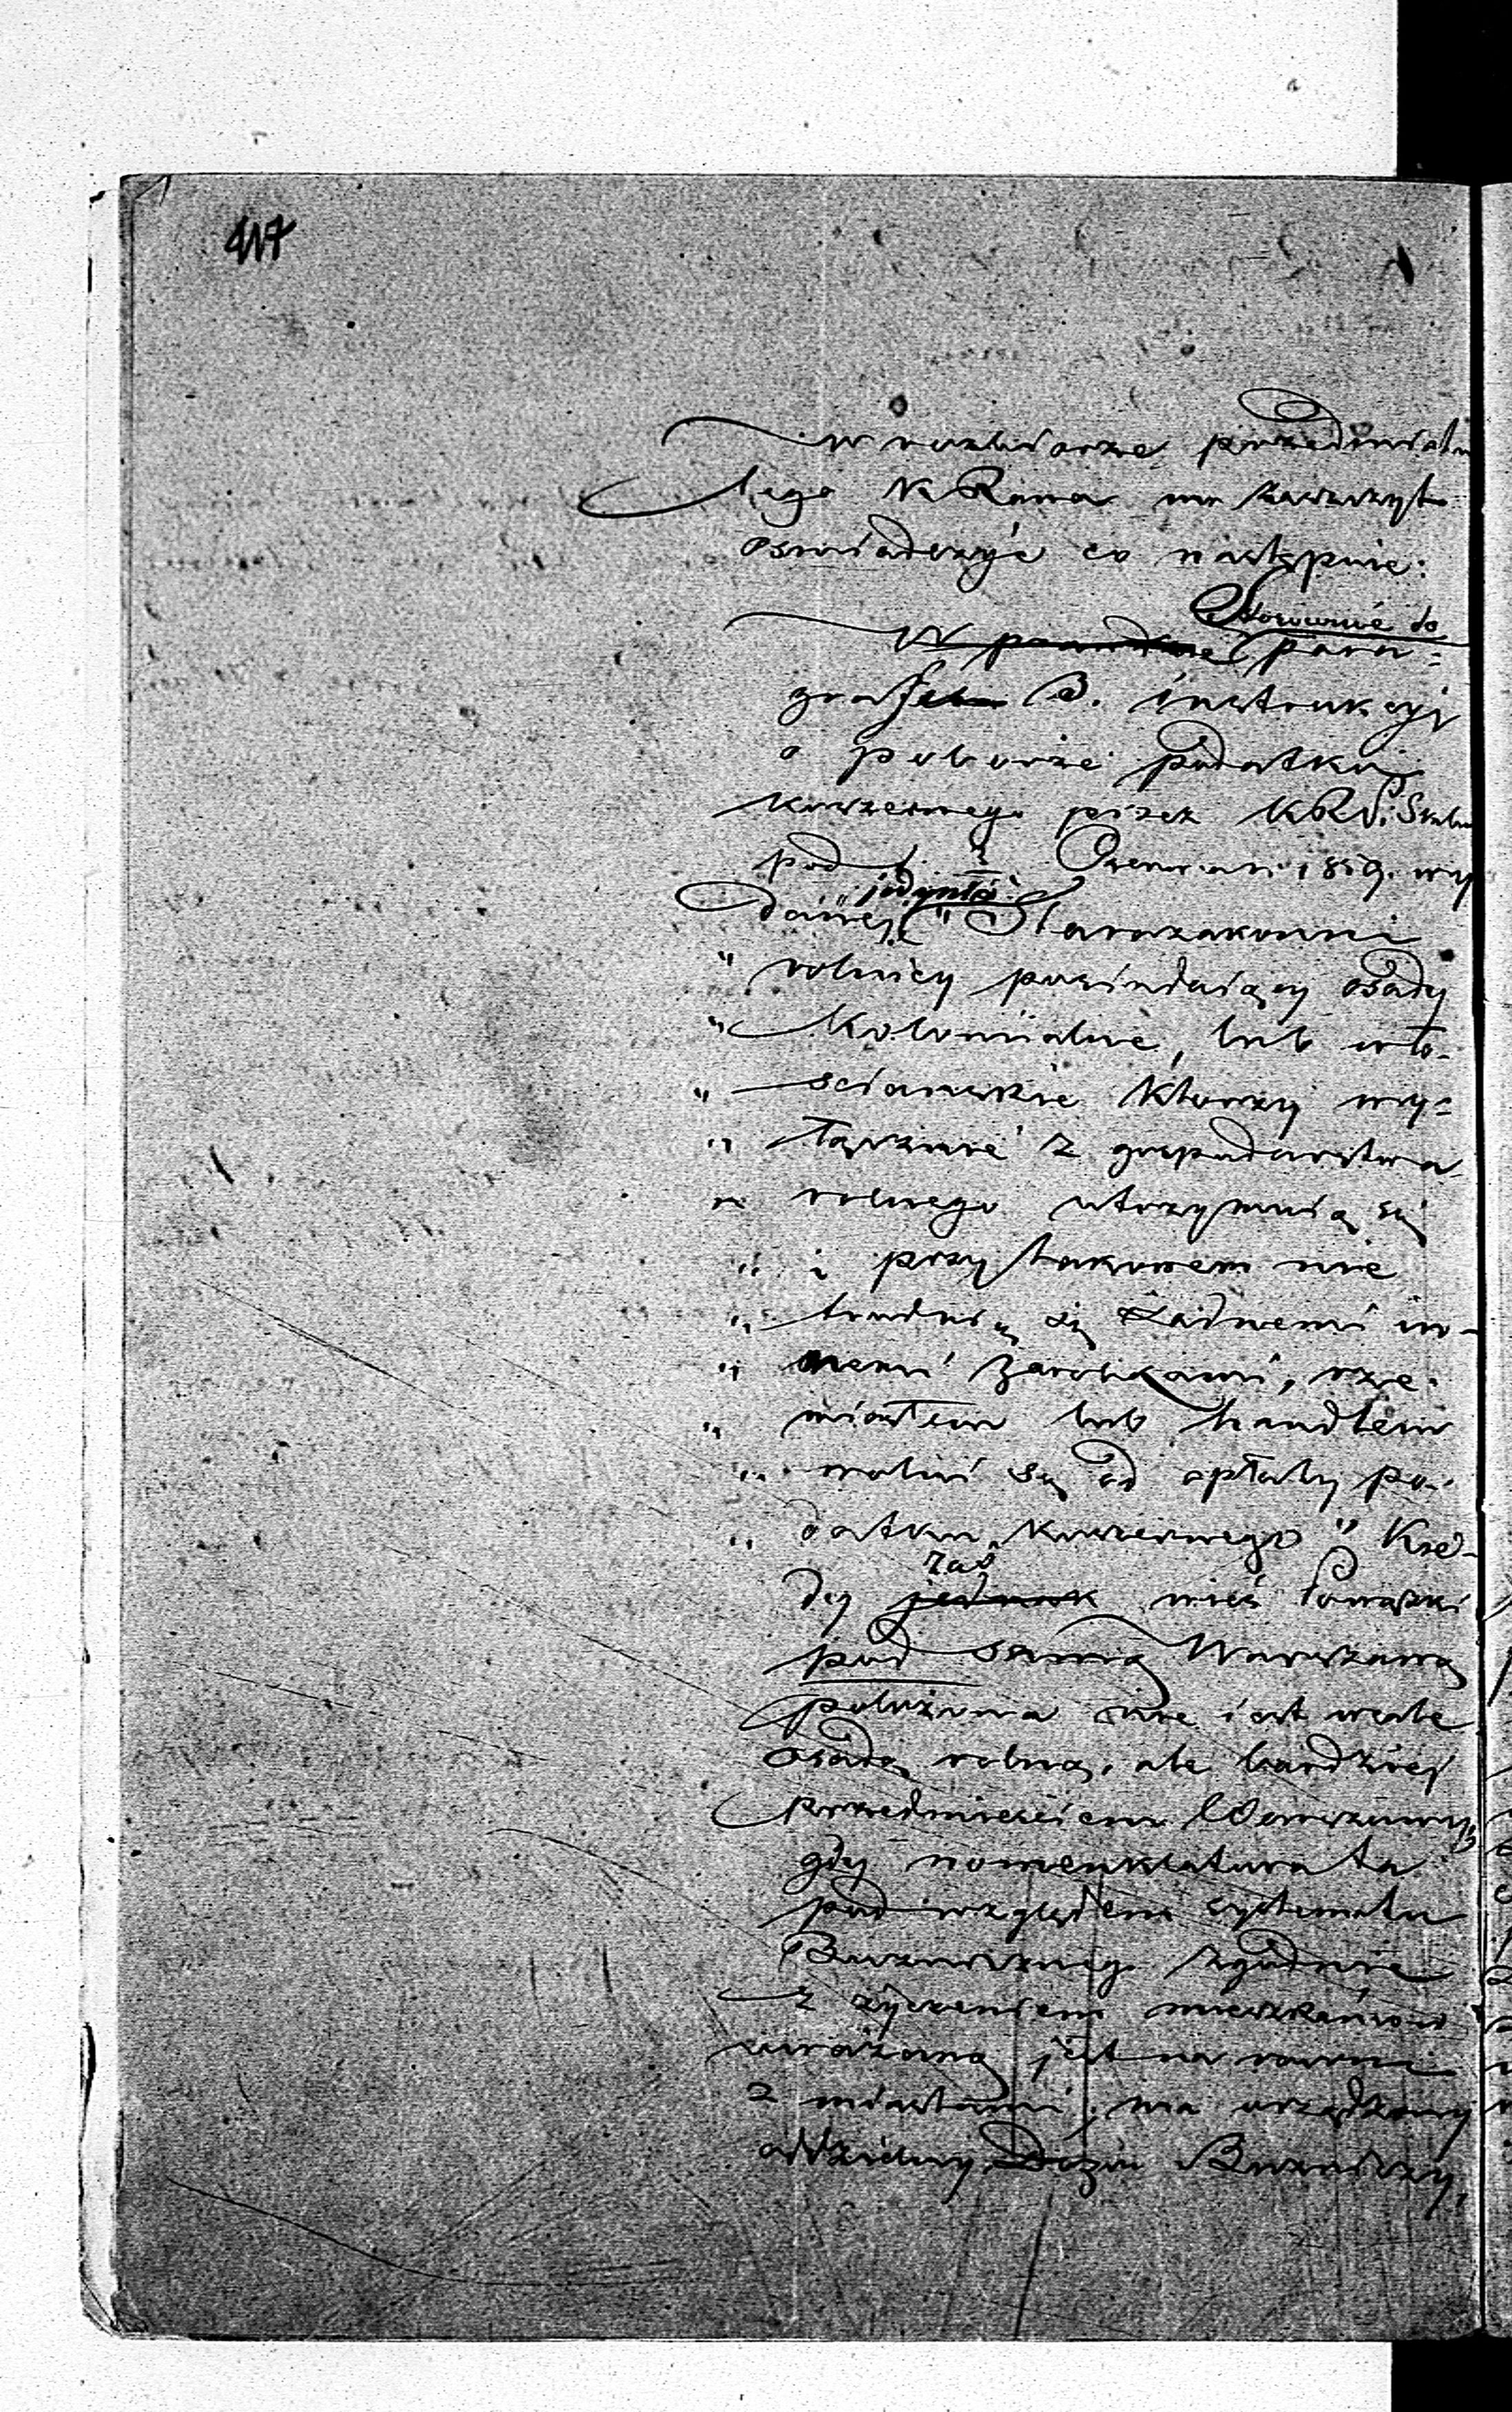 417
w rozbiorze przedmiotu
tego K Rzowa ma zaszczyt
oswiadczyć co następuie:
Stosownie do
W para-
grafu 3. instrukcyi
o poborze podatku
koszernego przez KRPi Skarbu
pod Czerwca 1809. wy
jedynie
daney, " Starozakonni
" rolnicy posiadaiący osady
" kolonialne, lub wło-
" sciańskie którzy wy-
" łącznie z gospodarstwa
" rolnego utrzymuią się
" i przytakowem nie
" trudnią się żadnemi in-
" nemi zarobkami, rze-
" miosłem lub handlem
" wolni są od opłaty po-
" datku koszernego " Kie-
zaś
dy jednak wieś Powązki
pod samą Warszawą
położona nie iest wcale
osadą rolną, ale bardziey
przedmieściem Warszawy,
gdy nomenklatura ta
pod względem systematu
Bużnicznego zgodnie
z życzeniem mieszkańców
uważaną jest na rowni
z miastami, ma urządzony
oddzielny Dozór Bużniczy,